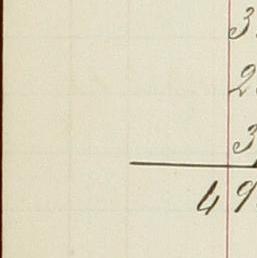 3
2
3
49